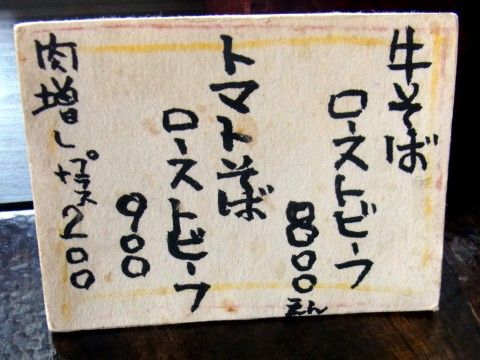 牛そば
ローストビーフ
800えん
トマトそば
ローストビーフ
900
肉増しプラス200